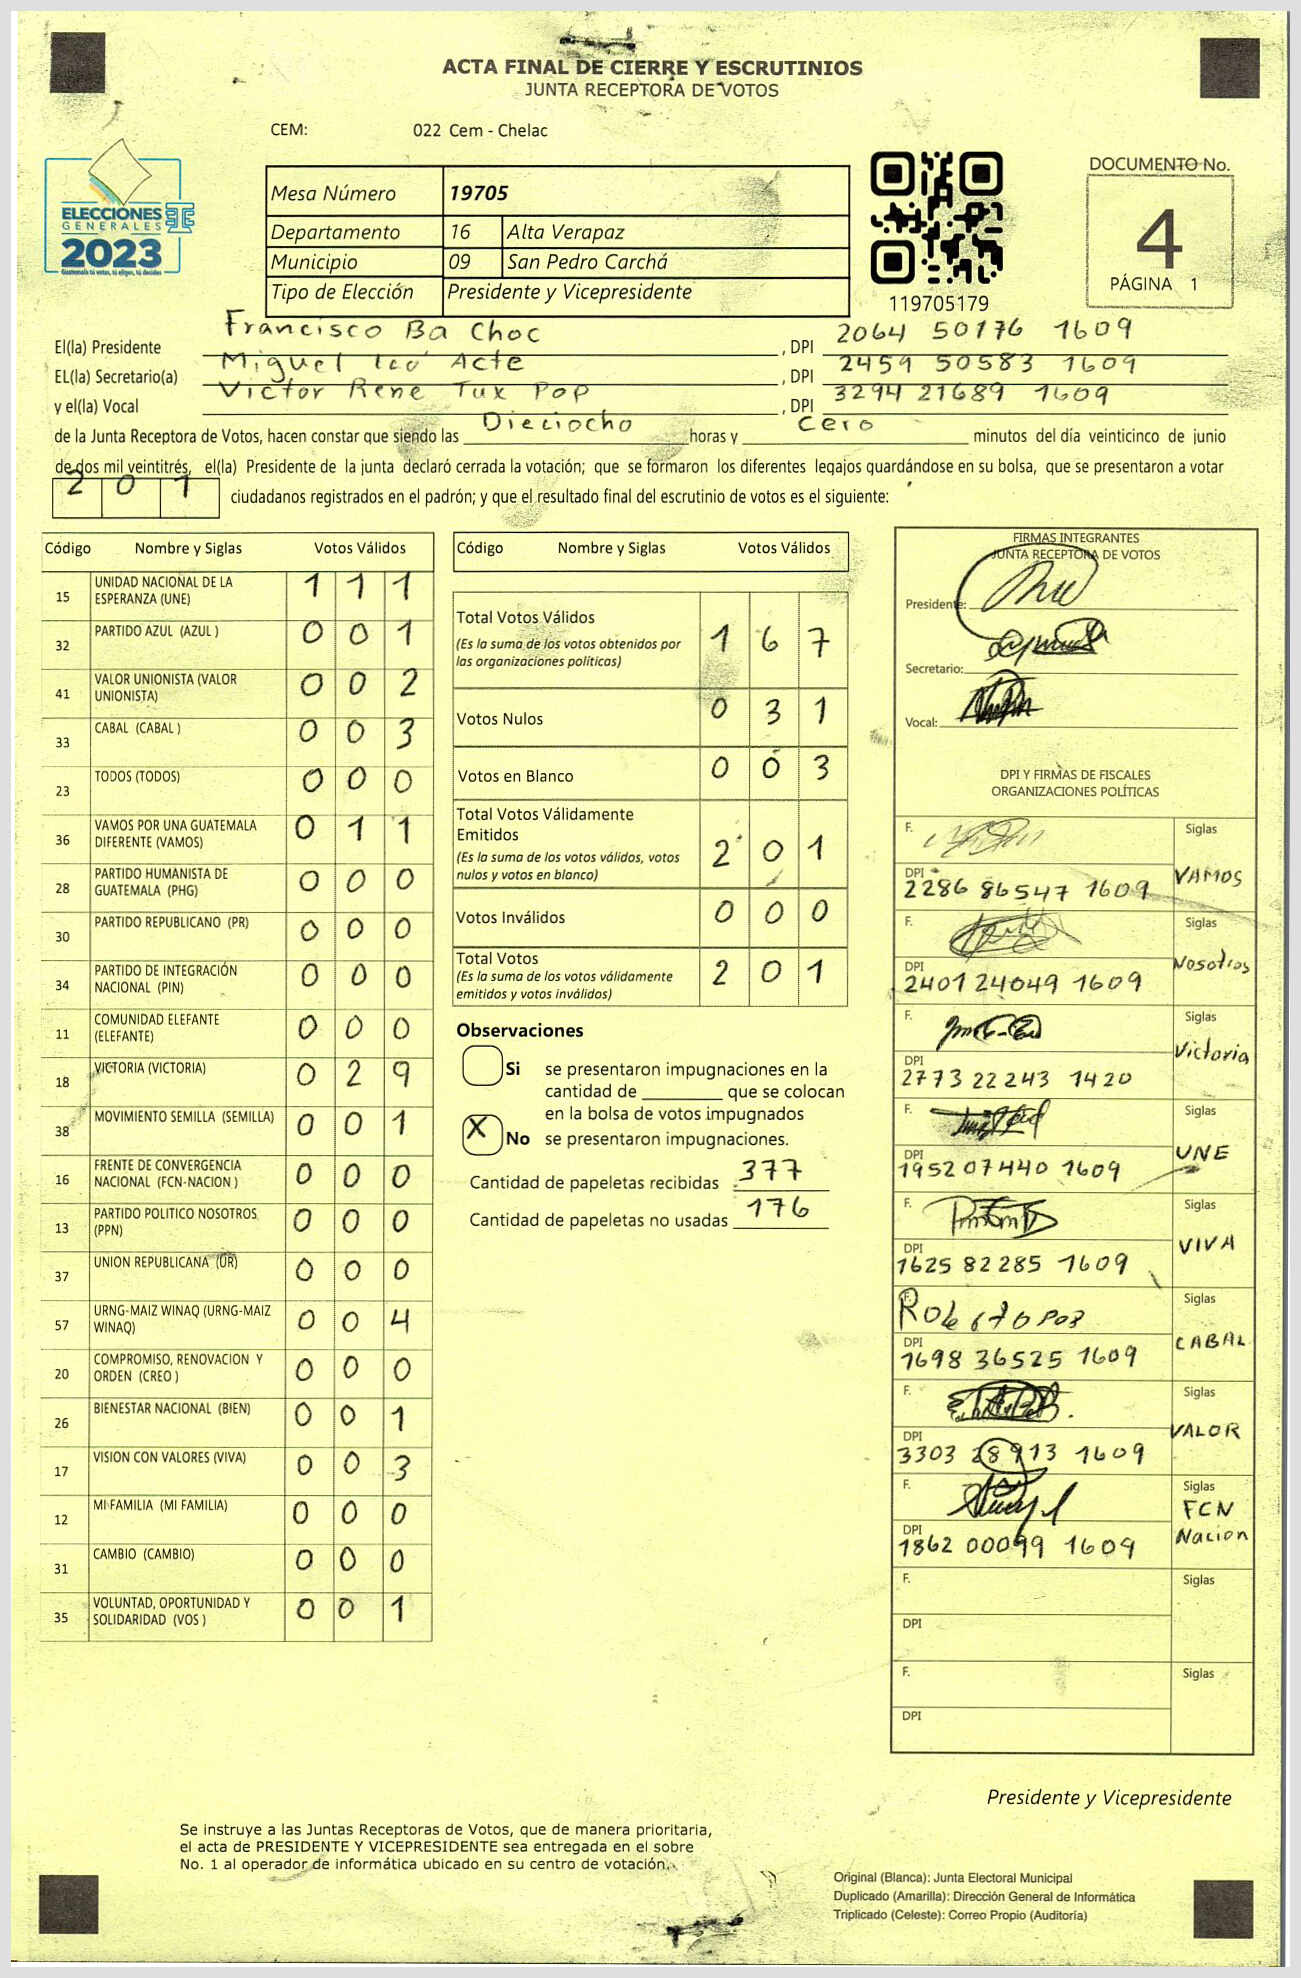 ACTA FINAL DE CIERRE Y ESCRUTINIOS
JUNTA RECEPTORA DE VOTOS
CEM: 022 Cem - Chelac
ELECCIONES
GENERALES
2023
Guatemala tú votas, tú eliges, tú decides
Mesa Número 19705
Departamento 16 Alta Verapaz
Municipio 09 San Pedro Carchá
Tipo de Elección Presidente y Vicepresidente
119705179
DOCUMENTO No.
4
PÁGINA 1
El(la) Presidente Francisco Ba Choc, DPI 2064 50176 1609
EL(la) Secretario(a) Miguel Icó Acte, DPI 2459 50583 1609
y el(la) Vocal Victor Rene Tux Pop, DPI 3294 21689 1609
de la Junta Receptora de Votos, hacen constar que siendo las Dieciocho horas y cero minutos del día veinticinco de junio
de dos mil veintitrés, el(la) Presidente de la junta declaró cerrada la votación; que se formaron los diferentes legajos guardándose en su bolsa, que se presentaron a votar
201 ciudadanos registrados en el padrón; y que el resultado final del escrutinio de votos es el siguiente:
Código Nombre y Siglas Votos Válidos
15 UNIDAD NACIONAL DE LA ESPERANZA (UNE) 1 1 1
32 PARTIDO AZUL (AZUL ) 0 0 1
41 VALOR UNIONISTA (VALOR UNIONISTA) 0 0 2
33 CABAL (CABAL ) 0 0 3
23 TODOS (TODOS) 0 0 0
36 VAMOS POR UNA GUATEMALA DIFERENTE (VAMOS) 0 1 1
28 PARTIDO HUMANISTA DE GUATEMALA (PHG) 0 0 0
30 PARTIDO REPUBLICANO (PR) 0 0 0
34 PARTIDO DE INTEGRACIÓN NACIONAL (PIN) 0 0 0
11 COMUNIDAD ELEFANTE (ELEFANTE) 0 0 0
18 VICTORIA (VICTORIA) 0 2 9
38 MOVIMIENTO SEMILLA (SEMILLA) 0 0 1
16 FRENTE DE CONVERGENCIA NACIONAL (FCN-NACION ) 0 0 0
13 PARTIDO POLITICO NOSOTROS (PPN) 0 0 0
37 UNION REPUBLICANA (UR) 0 0 0
57 URNG-MAIZ WINAQ (URNG-MAIZ WINAQ) 0 0 4
20 COMPROMISO, RENOVACION Y ORDEN (CREO ) 0 0 0
26 BIENESTAR NACIONAL (BIEN) 0 0 1
17 VISION CON VALORES (VIVA) 0 0 3
12 MI FAMILIA (MI FAMILIA) 0 0 0
31 CAMBIO (CAMBIO) 0 0 0
35 VOLUNTAD, OPORTUNIDAD Y SOLIDARIDAD (VOS ) 0 0 1
Código Nombre y Siglas Votos Válidos
Total Votos Válidos 1 6 7
(Es la suma de los votos obtenidos por
las organizaciones políticas)
Votos Nulos 0 3 1
Votos en Blanco 0 0 3
Total Votos Válidamente
Emitidos 2 0 1
(Es la suma de los votos válidos, votos
nulos y votos en blanco)
Votos Inválidos 0 0 0
Total Votos 2 0 1
(Es la suma de los votos válidamente
emitidos y votos inválidos)
Observaciones
Si se presentaron impugnaciones en la
cantidad de ________ que se colocan
en la bolsa de votos impugnados
X No se presentaron impugnaciones.
Cantidad de papeletas recibidas 377
Cantidad de papeletas no usadas 176
FIRMAS INTEGRANTES
JUNTA RECEPTORA DE VOTOS
Presidente:
Secretario:
Vocal:
DPI Y FIRMAS DE FISCALES
ORGANIZACIONES POLÍTICAS
F. Siglas
DPI 2286 86547 1609 VAMOS
F. Siglas
DPI 2401 24049 1609 Nosotros
F. Siglas
DPI 2773 22243 1420 Victoria
F. Siglas
DPI 1952 07440 1609 UNE
F. Siglas
DPI 1625 82285 1609 VIVA
F. Siglas
DPI 1698 36525 1609 CABAL
F. Siglas
DPI 3303 28913 1609 VALOR
F. Siglas
DPI 1862 00099 1609 FCN Nacion
F. Siglas
DPI
F. Siglas
DPI
Presidente y Vicepresidente
Se instruye a las Juntas Receptoras de Votos, que de manera prioritaria,
el acta de PRESIDENTE Y VICEPRESIDENTE sea entregada en el sobre
No. 1 al operador de informática ubicado en su centro de votación.
Original (Blanca): Junta Electoral Municipal
Duplicado (Amarilla): Dirección General de Informática
Triplicado (Celeste): Correo Propio (Auditoría)